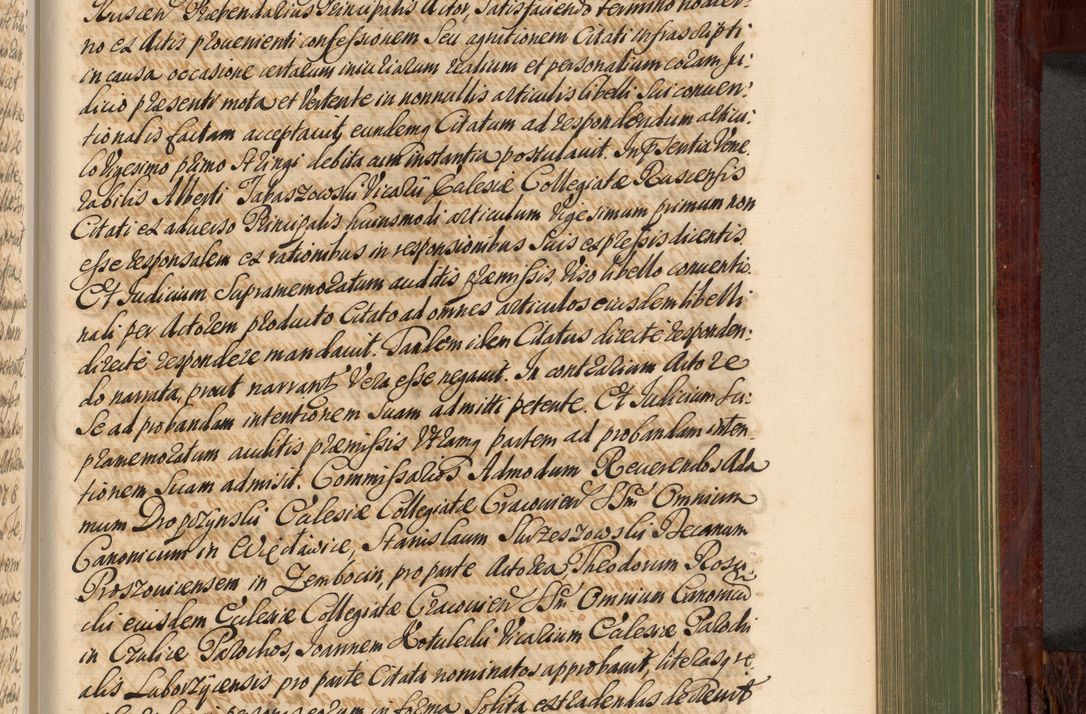 Ruscen Præbendarius Principalis Actor, Satisfaciendo termino hodier-
no ex Actis provenienti confessionem Seu agnitionem Citati infrascripti
in causa occasione certarum iniuriarum realium et personalium coram Ju:
dicio præsenti mota et Vertente in nonnullis articulis libelli Sui conven:
tionalis factam acceptavit, eundemq Citatum ad respondendum articu:
lo Vigesimo primo Stringi debita cum instantia postulavit. In Pntia Vene
rabilis Alberti Jabaszowski Vicarii Ecclesiæ Collegiatæ Ruscensis
Citati ex adverso Principalis huiusmodi articulum Vigesimum primum non
esse responsalem ex rationibus in responsionibus Suis expressis dicentis,
Et Judicium Supramemoratum auditis præmissis, Viso libello conventio
nali per Actorem producto Citato ad omnes articulos eiusdem libelli
directè respondere mandavit. Tandem idem Citatus directè responden:
do narrata, prout narrant Vera esse negavit. In contrarium Actore
Se ad probandam intentionem Suam admitti petente. Et Judicium Su:
pramemoratum auditis præmissis Utramq partem ad probandam inten
tionem Suam admisit. Commissarios Admodum Reverendos Ada
mum Dropszynski Ecclesiæ Collegiatæ Cracovien SSm Omnium
Canonicum in Więcławice, Stanislaum Skrzeszowski Decanum
Proszovicensem in Zembocin, pro parte Actorea, Theodorum Rosu
cki eiusdem Ecclesiæ Collegiatæ Cracovien SSm Omnium Canonicũ
in Gralice Parochos, Joannem Kotulecki Vicarium Ecclesiæ Parochi
alis Laborzycensis pro parte Citata nominatos approbavit, literasq re
in forma Solita extradendas decrevit